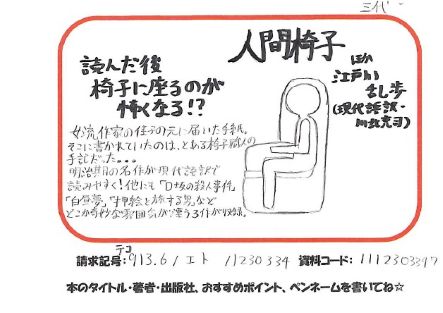 三代
人間椅子
ほか
江戸川
乱歩
(現代語訳・
川北亮司)
読んだ後
椅子に座るのが
怖くなる!?
女流作家の佳子の元に届いた手紙。
そこに書かれていたのは、とある椅子職人の
手記だった。。。
明治期の名作が現代語訳で
読みやすく!他にも「D坂の殺人事件」
「白昼夢」「押絵と旅する男」など
どこか奇妙な雰囲気が漂う3作が収録。
テコ
請求記号: 913.6/エト/11230334 資料コード: 1112303347
本のタイトル・著者・出版社、おすすめポイント、ペンネームを書いてね☆